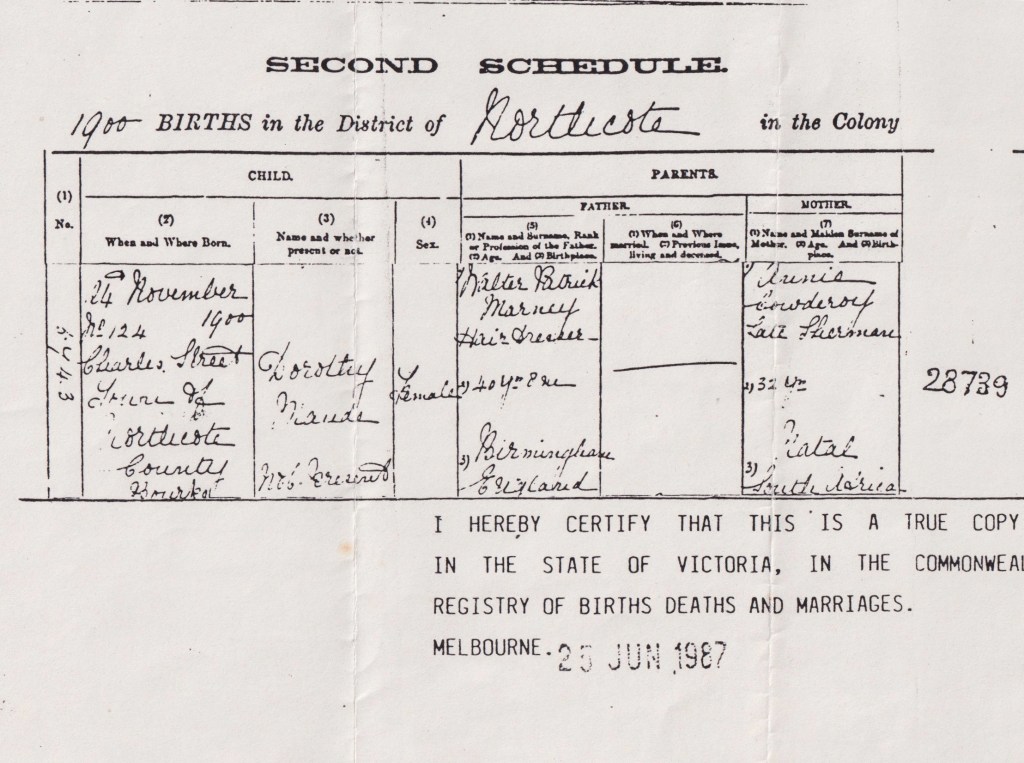 SECOND SCHEDULE.
1900 BIRTHS in the District of Northcote in the Colony
CHILD.
PARENTS.
FATHER.
MOTHER.
(1)
No.
(2)
When and Where Born.
(3)
Name and whether
present or not.
(4)
Sex.
(5)
(1) Name and Surname, Rank
or Profession of the Father.
(2) Age. And (3) Birthplace.
(6)
(1) When and Where
married. (2) Previous Issue,
living and deceased.
(7)
(1) Name and Maiden Surname of
Mother. (2) Age. And (3) Birth-
place.
5743
24 November
1900
No 124
Charles Street
Town of
Northcote
County
Bourke
Dorothy
Maude
Not Present
Female
1) Walter Patrick
Marney
Hair Dresser
2) 40 yrs
3) Birmingham
England
Cowderoy
Late Sherman
2) 32 yrs
Natal
3) South Africa
28739
I HEREBY CERTIFY THAT THIS IS A TRUE COPY
IN THE STATE OF VICTORIA, IN THE COMMONWEAL
REGISTRY OF BIRTHS DEATHS AND MARRIAGES.
MELBOURNE. 25 JUN 1987